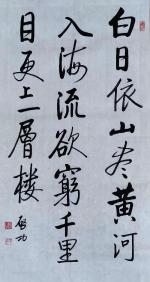 白日依山尽黄河
入海流欲窮千里
目更上一層楼
啓功